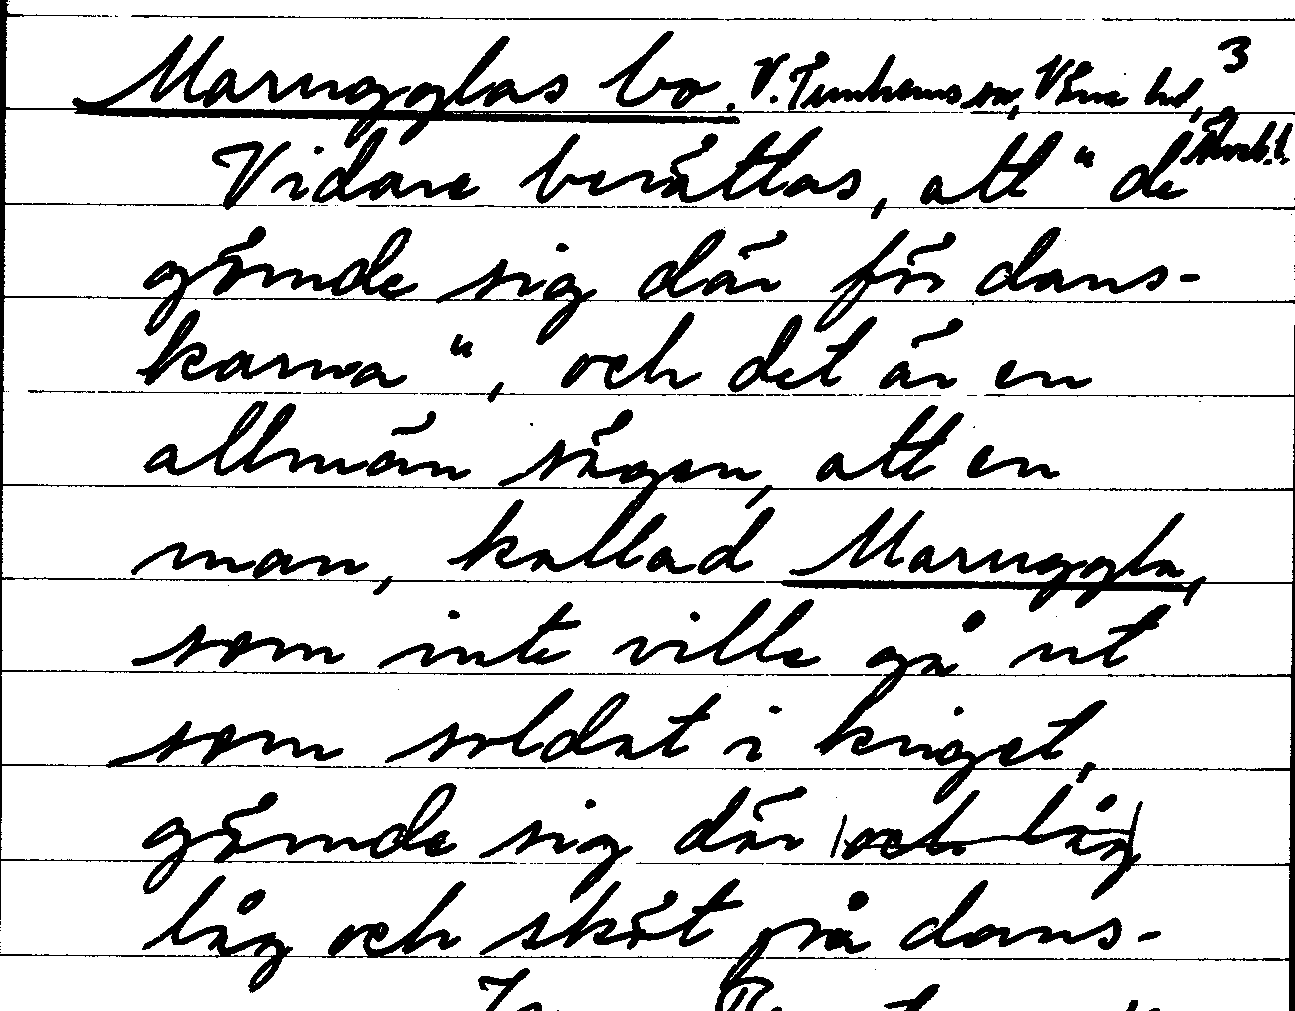 Marugglas bo. V. Tunhems sn, Väne hd, 3
Skarab. l.
Vidare berättas, att "de
gömde sig där för dans-
karna", och det är en
allmän sägen, att en
man, kallad Maruggla,
som inte ville gå ut
som soldat i kriget,
gömde sig där och låg
låg och sköt på dans-